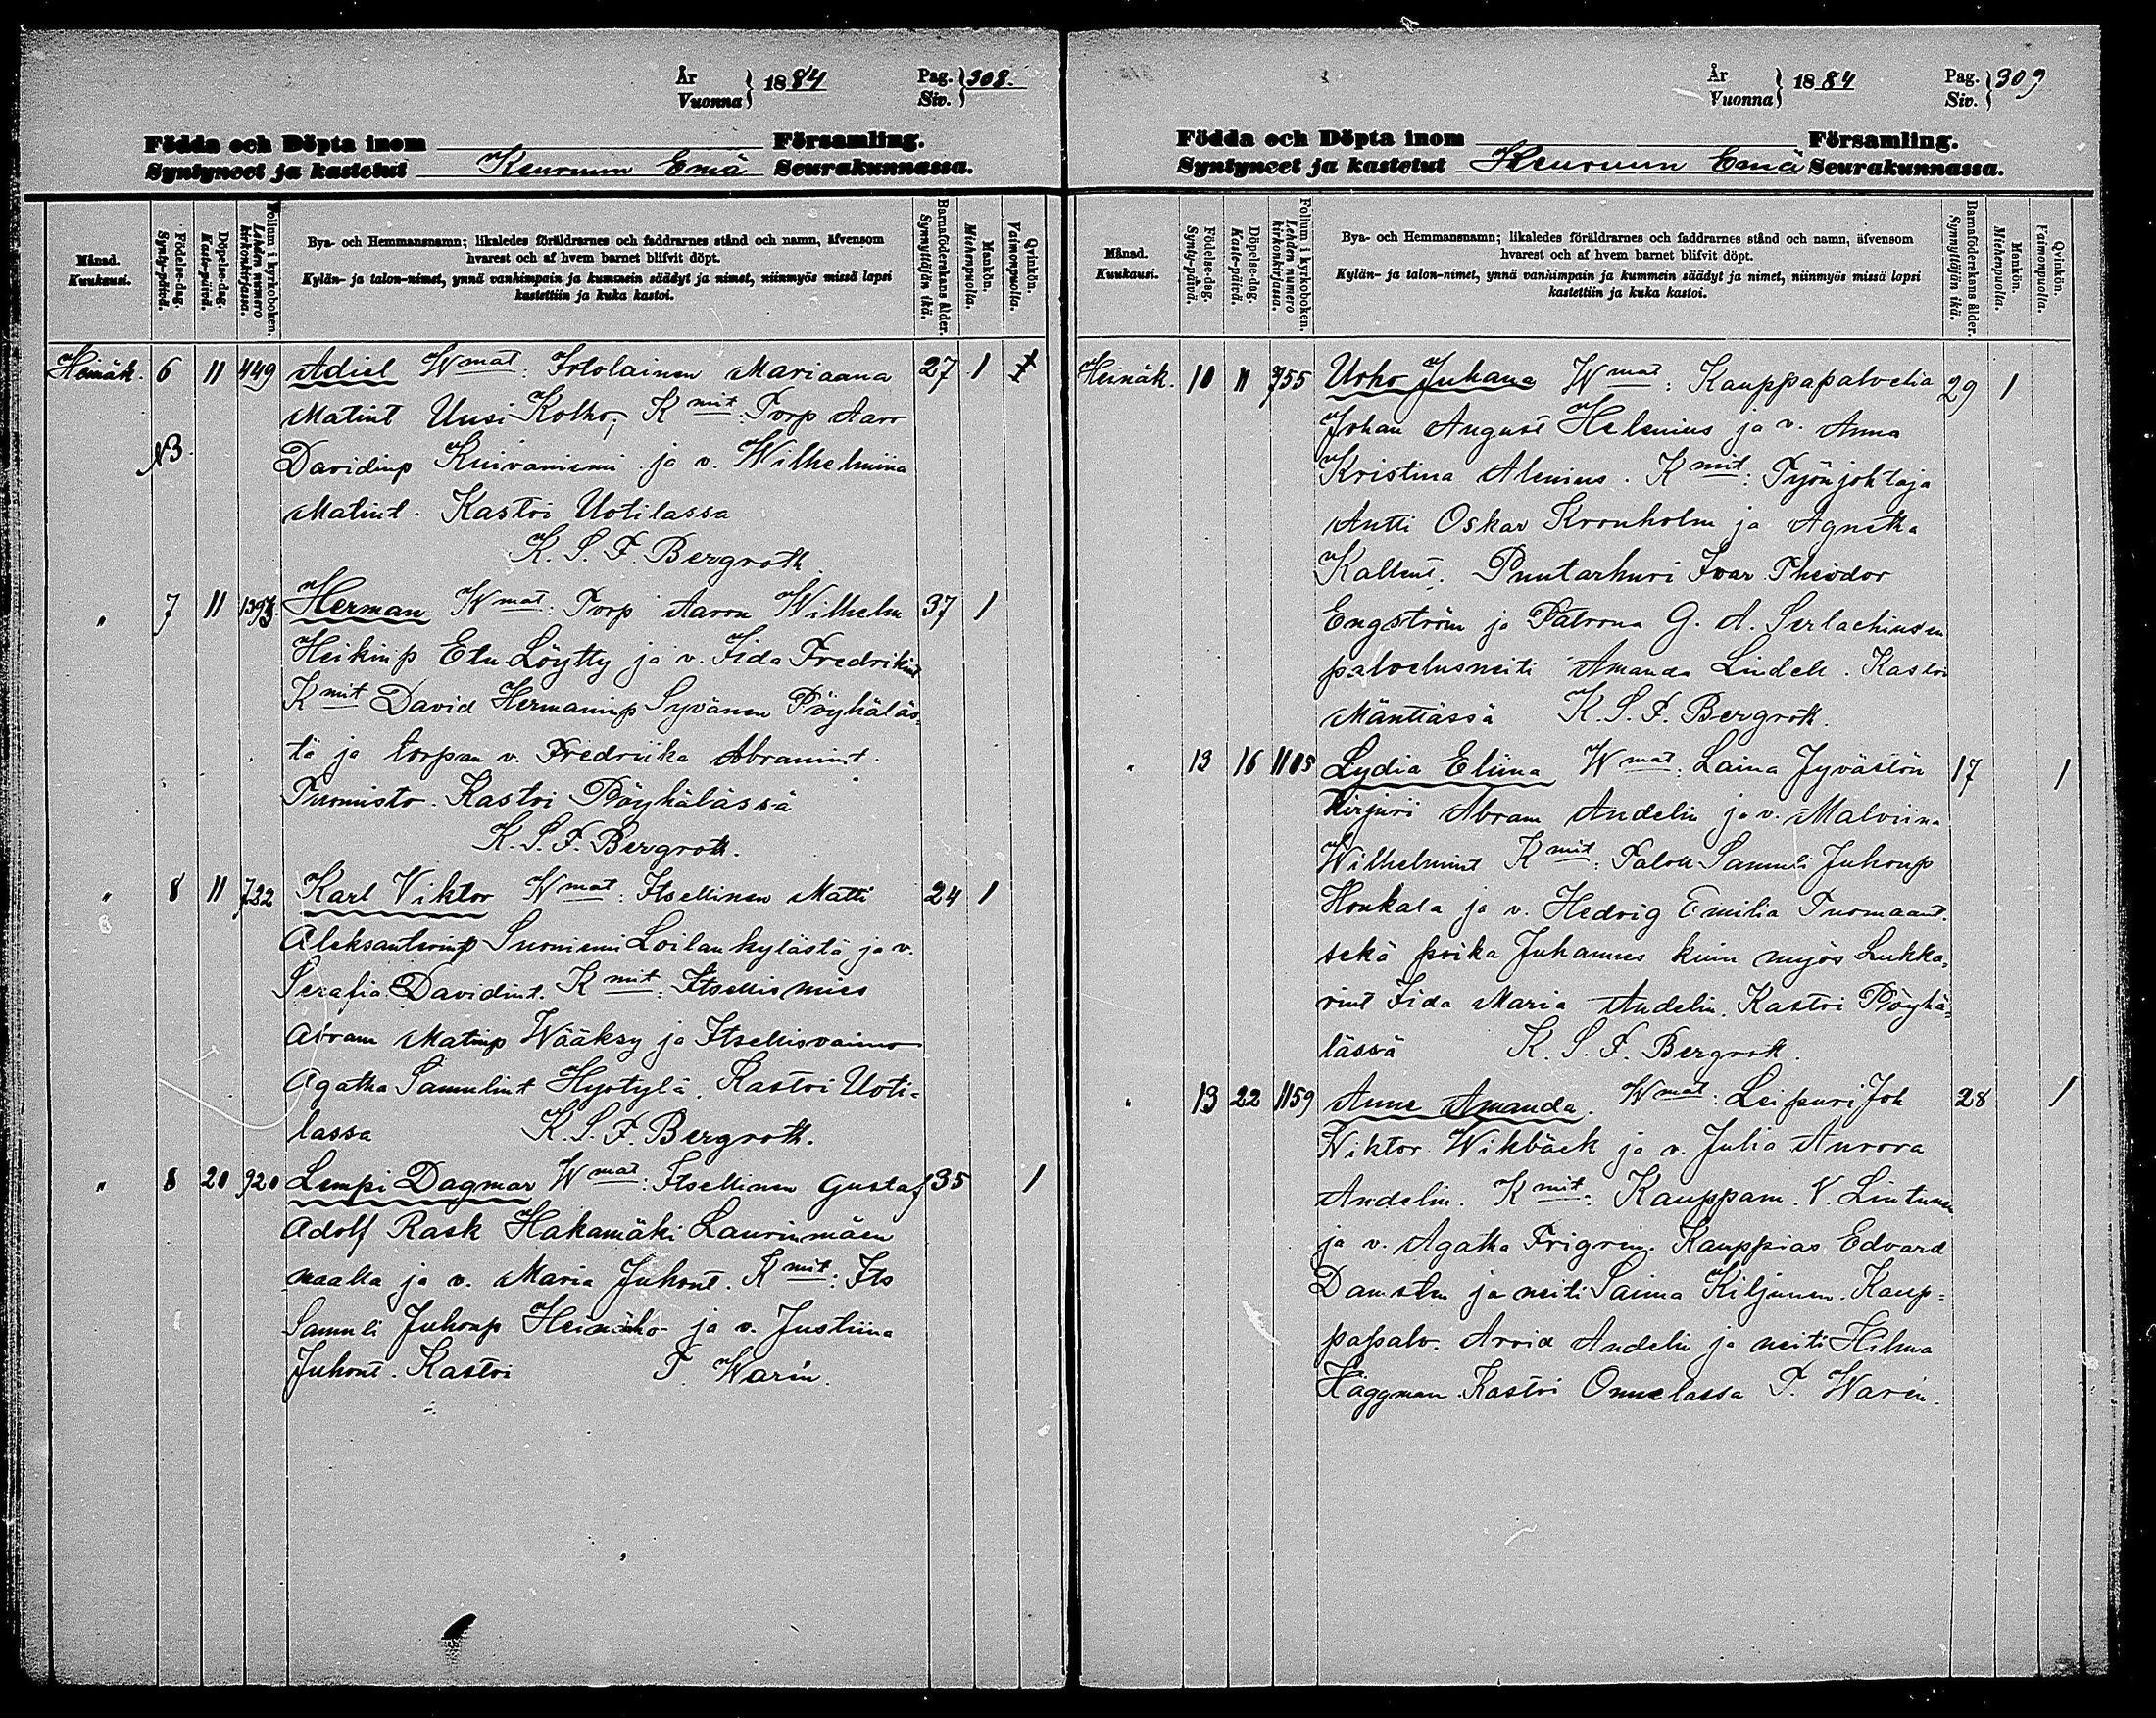 År
Vuonna } 1884 Pag.
Siv. } 308.
Födda och Döpta inom Församling.
Syntyneet ja kastetut Keuruun Emä Seurakunnassa.
Månad.
Kuukausi.
Födelse-dag.
Synty-päivä.
Döpelse-dag.
Kaste-päivä.
Folium i kyrkoboken.
Lehden numero
kirkonkirjassa.
Bya- och Hemmansnamn; likaledes föräldrarnes och faddrarnes stånd och namn, äfvensom
hvarest och af hvem barnet blifvit döpt.
Kylän- ja talon-nimet, ynnä vanhimpain ja kummein säädyt ja nimet, niinmyös missä lapsi
kastettiin ja kuka kastoi.
Barnaföderskans ålder.
Synnyttäjän ikä.
Mankön.
Miehenpuolia.
Qvinkön.
Vaimonpuolia.
Heinäk. 6 11 449 Adiel Wmat: Itolainen Mariaana 27 1
Matint Uusi Kolho; Kmit: Torp Aaro
N3 Davidinp Kuivaniemi ja v. Wilhelmiina
Matint. Kastoi Uotilassa
K. S. F. Bergroth.
" 7 11 1393 Herman Wmat: Torp Aaron Wilhelm 37 1
Heikinp Etu-Löytty ja v. Iida Fredrikint
Kmit David Hermaninp Syvänen Pöyhäläs-
tä ja torpan v. Fredriika Abramint.
Tuomisto. Kastoi Pöyhälässä
K. S. F. Bergroth.
" 8 11 722 Karl Viktor Wmat: Itsellinen Matti 24 1
Aleksanterinp Suoniemi Loilankylästä ja v.
Serafia Davidint. Kmit: Itsellismies
Abram Matinp Wääksy ja Itsellisvaimo
Agatha Samulint Hyötylä. Kastoi Uoti-
lassa K. S. F. Bergroth.
" 8 20 920 Lempi Dagmar Wmat: Itsellinen Gustaf 35 1
Adolf Rask Hakamäki Laurinmäen
maalla ja v. Maria Juhont. Kmit: Its
Samuli Juhonp Heinäho ja v. Justiina
Juhont. Kastoi T. Warén.
År
Vuonna } 1884 Pag.
Siv. } 309
Födda och Döpta inom Församling.
Syntyneet ja kastetut Keuruun Emä Seurakunnassa.
Månad.
Kuukausi.
Födelse-dag.
Synty-päivä.
Döpelse-dag.
Kaste-päivä.
Folium i kyrkoboken.
Lehden numero
kirkonkirjassa.
Bya- och Hemmansnamn; likaledes föräldrarnes och faddrarnes stånd och namn, äfvensom
hvarest och af hvem barnet blifvit döpt.
Kylän- ja talon-nimet, ynnä vanhimpain ja kummein säädyt ja nimet, niinmyös missä lapsi
kastettiin ja kuka kastoi.
Barnaföderskans ålder.
Synnyttäjän ikä.
Mankön.
Miehenpuolia.
Qvinkön.
Vaimonpuolia.
Heinäk. 10 11 755 Urho Juhana Wmat: Kauppapalvelia 29 1
Johan August Helenius ja v. Anna
Kristina Alenius. Kmit: Työnjohtaja
Antti Oskar Kronholm ja Agnetha
Kallent. Puutarhuri Ivar Theodor
Engström ja Patroona G. A. Serlachiusen
palvelusneiti Amanda Lindell. Kastoi
Mänttässä K. S. F. Bergroth.
" 13 16 1105 Lydia Eliina Wmat: Laina Jyvästön 17 1
kirjuri Abram Andelin ja v. Malviina
Wilhelmint Kmit: Talok Samuli Juhonp
Honkala ja v. Hedvig Emilia Tuomaant.
sekä poika Juhannes kuin myös Lukka-
rint Iida Maria Andelin. Kastoi Pöyhä-
lässä K. S. F. Bergroth.
" 13 22 1159 Anne Amanda. Wmat: Leipuri Joh 28 1
Viktor Wikbäck ja v. Julia Aurora
Andelin. Kmit: Kauppam. V. Lintunen
ja v. Agatha Frigren. Kauppias Edvard
Damstén ja neiti Saima Kiljunen. Kaup-
papalv. Arvid Andelin ja neiti Hilma
Häggman. Kastoi Onnelassa T. Warén.